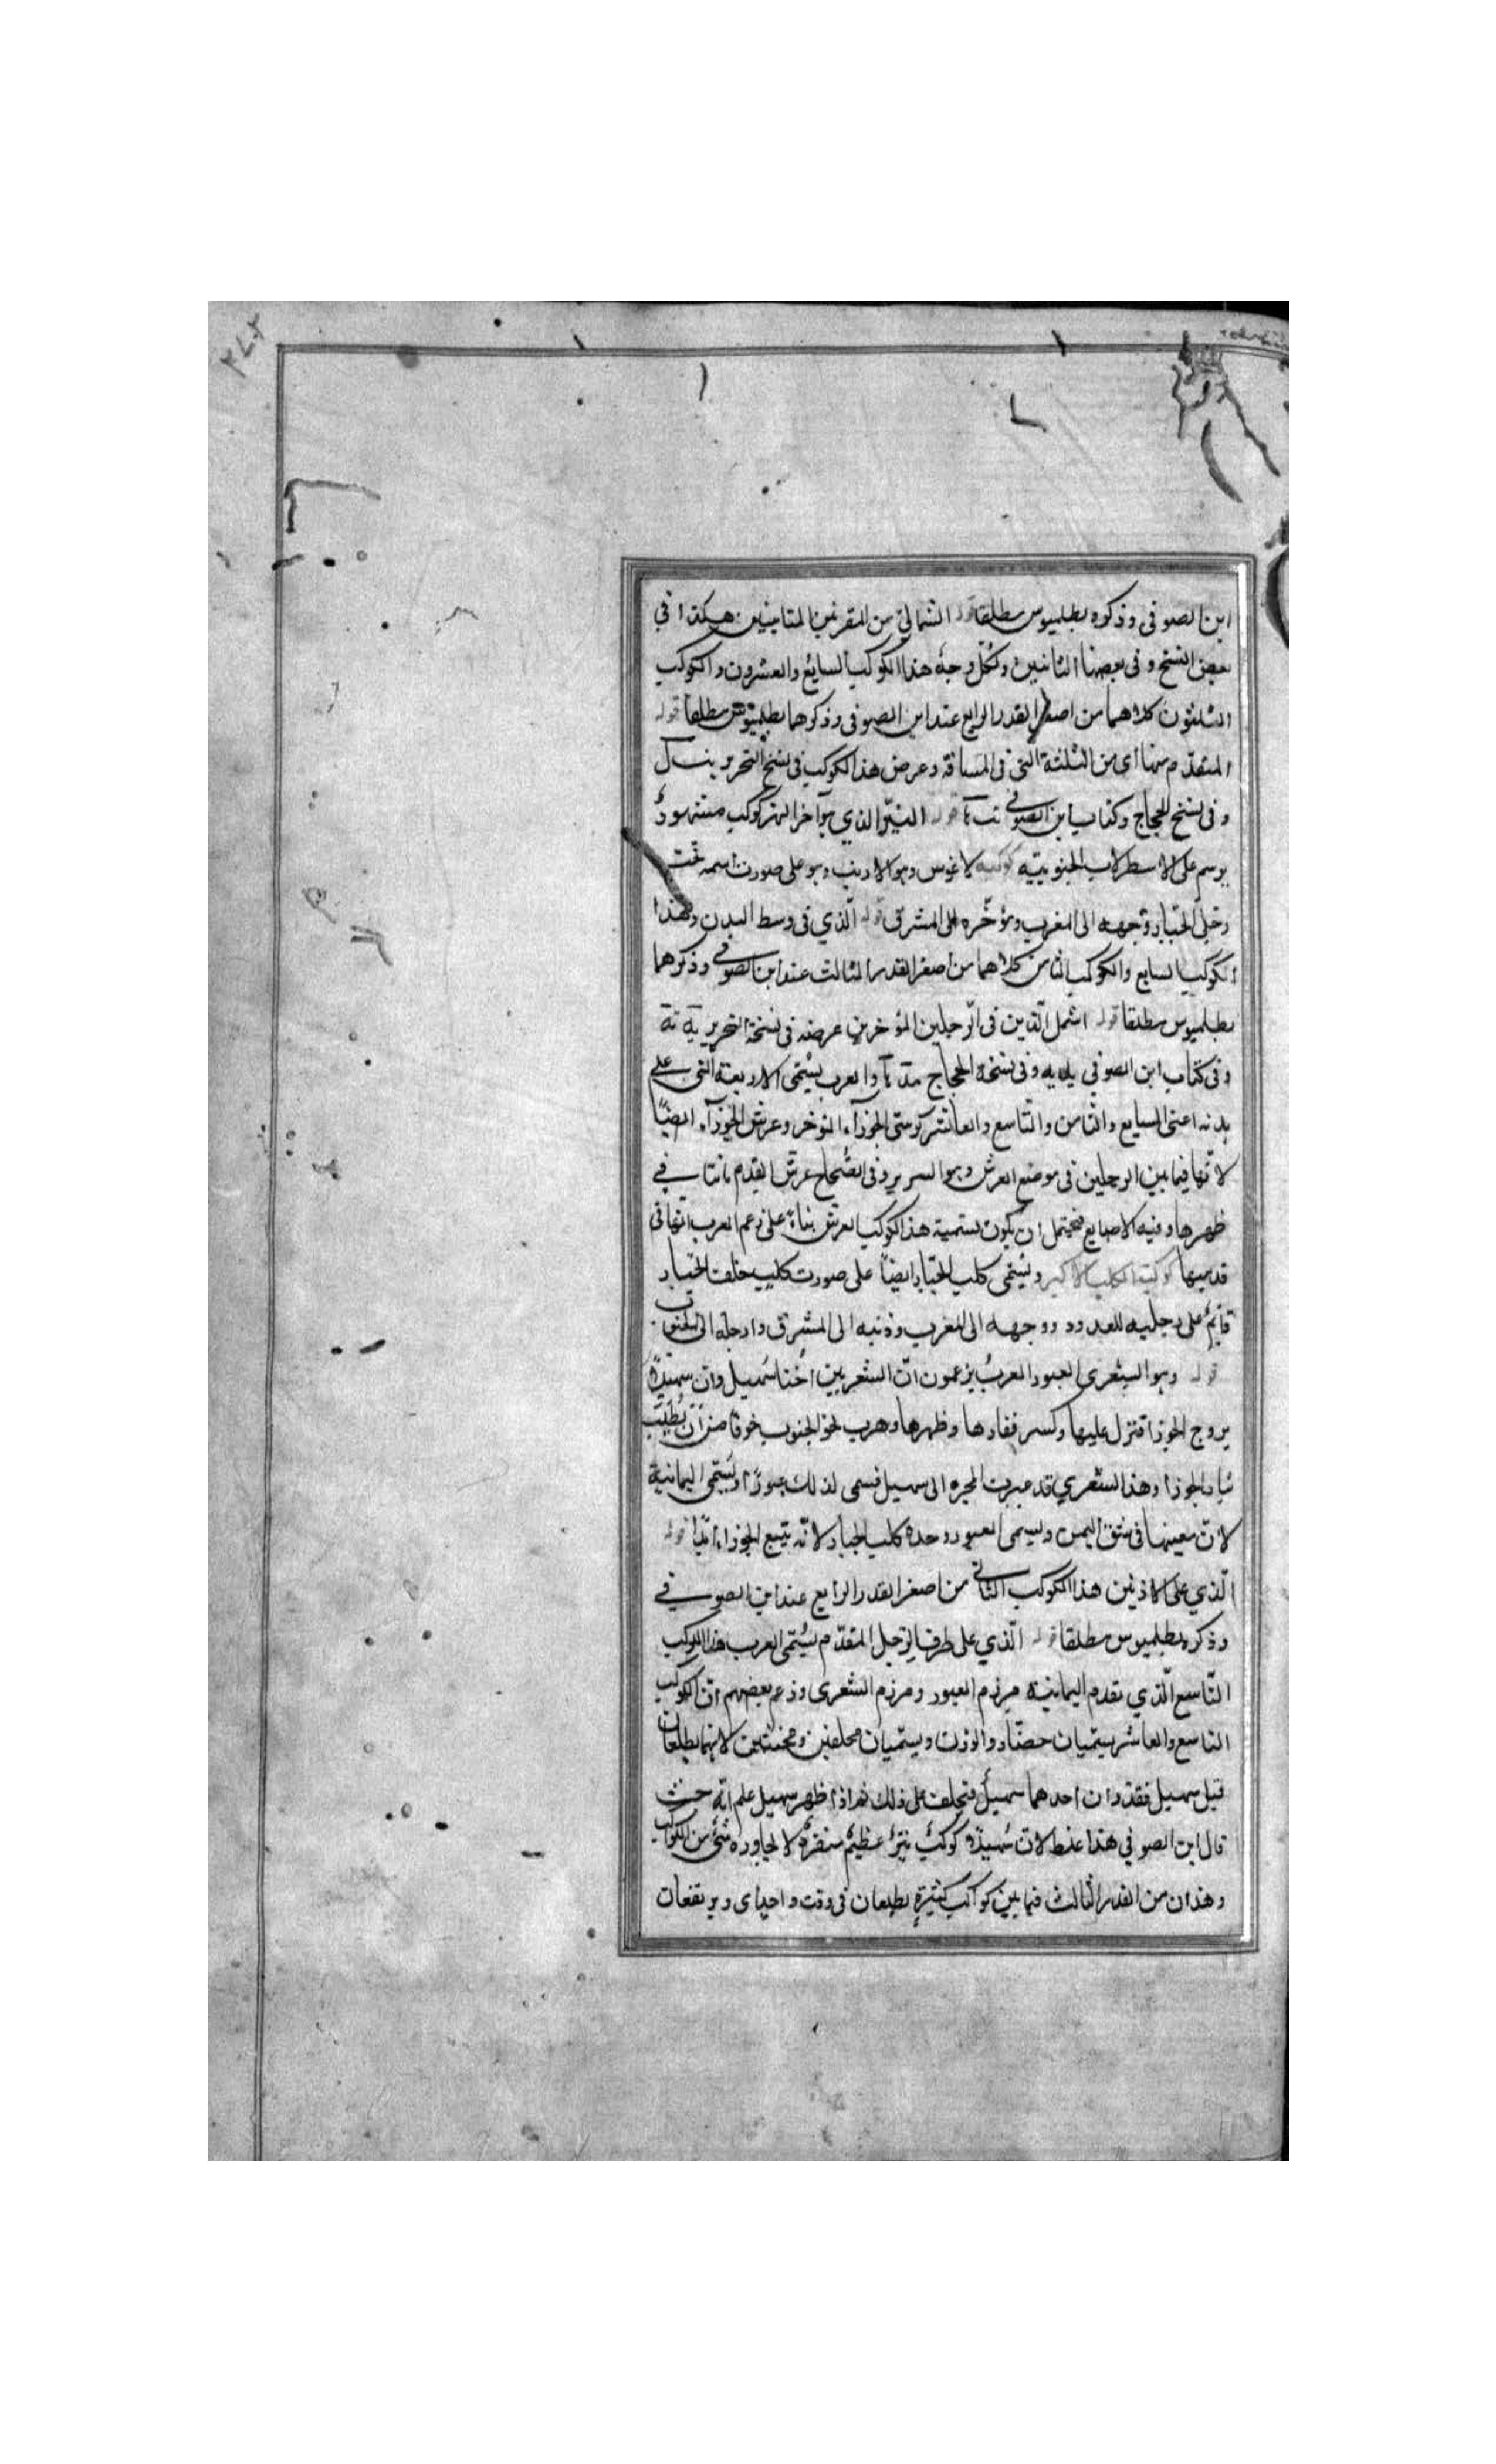 ابن الصوفى وذكره بطلميوس مطلقا قوله الشمالى من المقرنين المتتابعين هكذا فى
بعض النسخ وفى بعضها الثانيين ولكل وجه هذا الكوكب السابع والعشرون والكوكب
الثلثون كلاهما من اصغر القدر الرابع عند ابن الصوفى وذكرهما بطلميوس مطلقا قوله
المتقدم منها اى من الثلثة التى فى المسافة وعرض هذا الكوكب فى نسخ التحرير
وفى نسخ الحجاج وكتاب ابن الصوفى قوله النير الذى هو آخر النهر كوكب مشهور
يرسم على الاسطرلاب الجنوبية كوكبة لاغوس وهو الارنب وهو على صورت اسمه تحت
رجلى الجبار وجهه الى المغرب ومؤخره الى المشرق قوله الذى فى وسط البدن وهذا
الكوكب السابع والكوكب الثامن كلاهما من اصغر القدر الثالث عند ابن الصوفى وذكرهما
بطلميوس مطلقا قوله اشمل الذين فى الرجلين المؤخرين عرضه فى نسخة التحرير
وفى كتاب ابن الصوفى وفى نسخة الحجاج والعرب يسمى الاربعة التى على
بدنه اعنى السابع والثامن والتاسع والعاشر كرسى الجوزآء المؤخر وعرش الجوزآء ايضا
لانها فيما بين الرجلين فى موضع العرش وهو السرير وفى الصحاح عرش القدم ما نتا فى
ظهرها وفيه الاصابع فيحتمل ان يكون تسمية هذا الكوكب العرش بناء على زعم العرب انها فى
قدميها كوكبة الكلب الاكبر ويسمى كلب الجبار ايضا على صورت كلب خلف الجبار
قايم على رجليه للعدو ووجهه الى المغرب وذنبه الى المشرق وارجله الى الجنوب
قوله وهو الشعرى العبور العرب يزعمون ان الشعريين اختا سهيل وان سهيلا
يزوج الجوزا فنزل عليها وكسر فقارها وظهرها وهرب نحو الجنوب خوفا من ان يطلب
بثار الجوزا وهذا الشعرى قد عبرت المجره الى سهيل فسمى لذلك عبورا ويسمى اليمانية
لان مغيبها فى شق اليمن ويسمى العبور وحده كلب الجبار لانه يتبع الجوزاء ابدا قوله
الذى على الاذنين هذا الكوكب الثانى من اصغر القدر الرابع عند ابن الصوفى
وذكره بطلميوس مطلقا قوله الذى على طرف الرجل المتقدم يسمى العرب هذا الكوكب
التاسع الذى تقدم اليمانية مرزم العبور ومرزم الشعرى وزعم بعضهم ان الكوكب
التاسع والعاشر يسميان حضار والوزن ويسميان محلفين ومحنثين لانهما يطلعان
قبل سهيل فيقدر ان احدهما سهيل فيحلف على ذلك ثم اذا ظهر سهيل علم انه حنث
قال ابن الصوفى هذا غلط لان سهيلا كوكب نير عظيم منفرد لا يجاوره شئ من الكواكب
وهذان من القدر الثالث فيما بين كواكب كثيرة يطلعان فى وقت واحد ويرتفعان